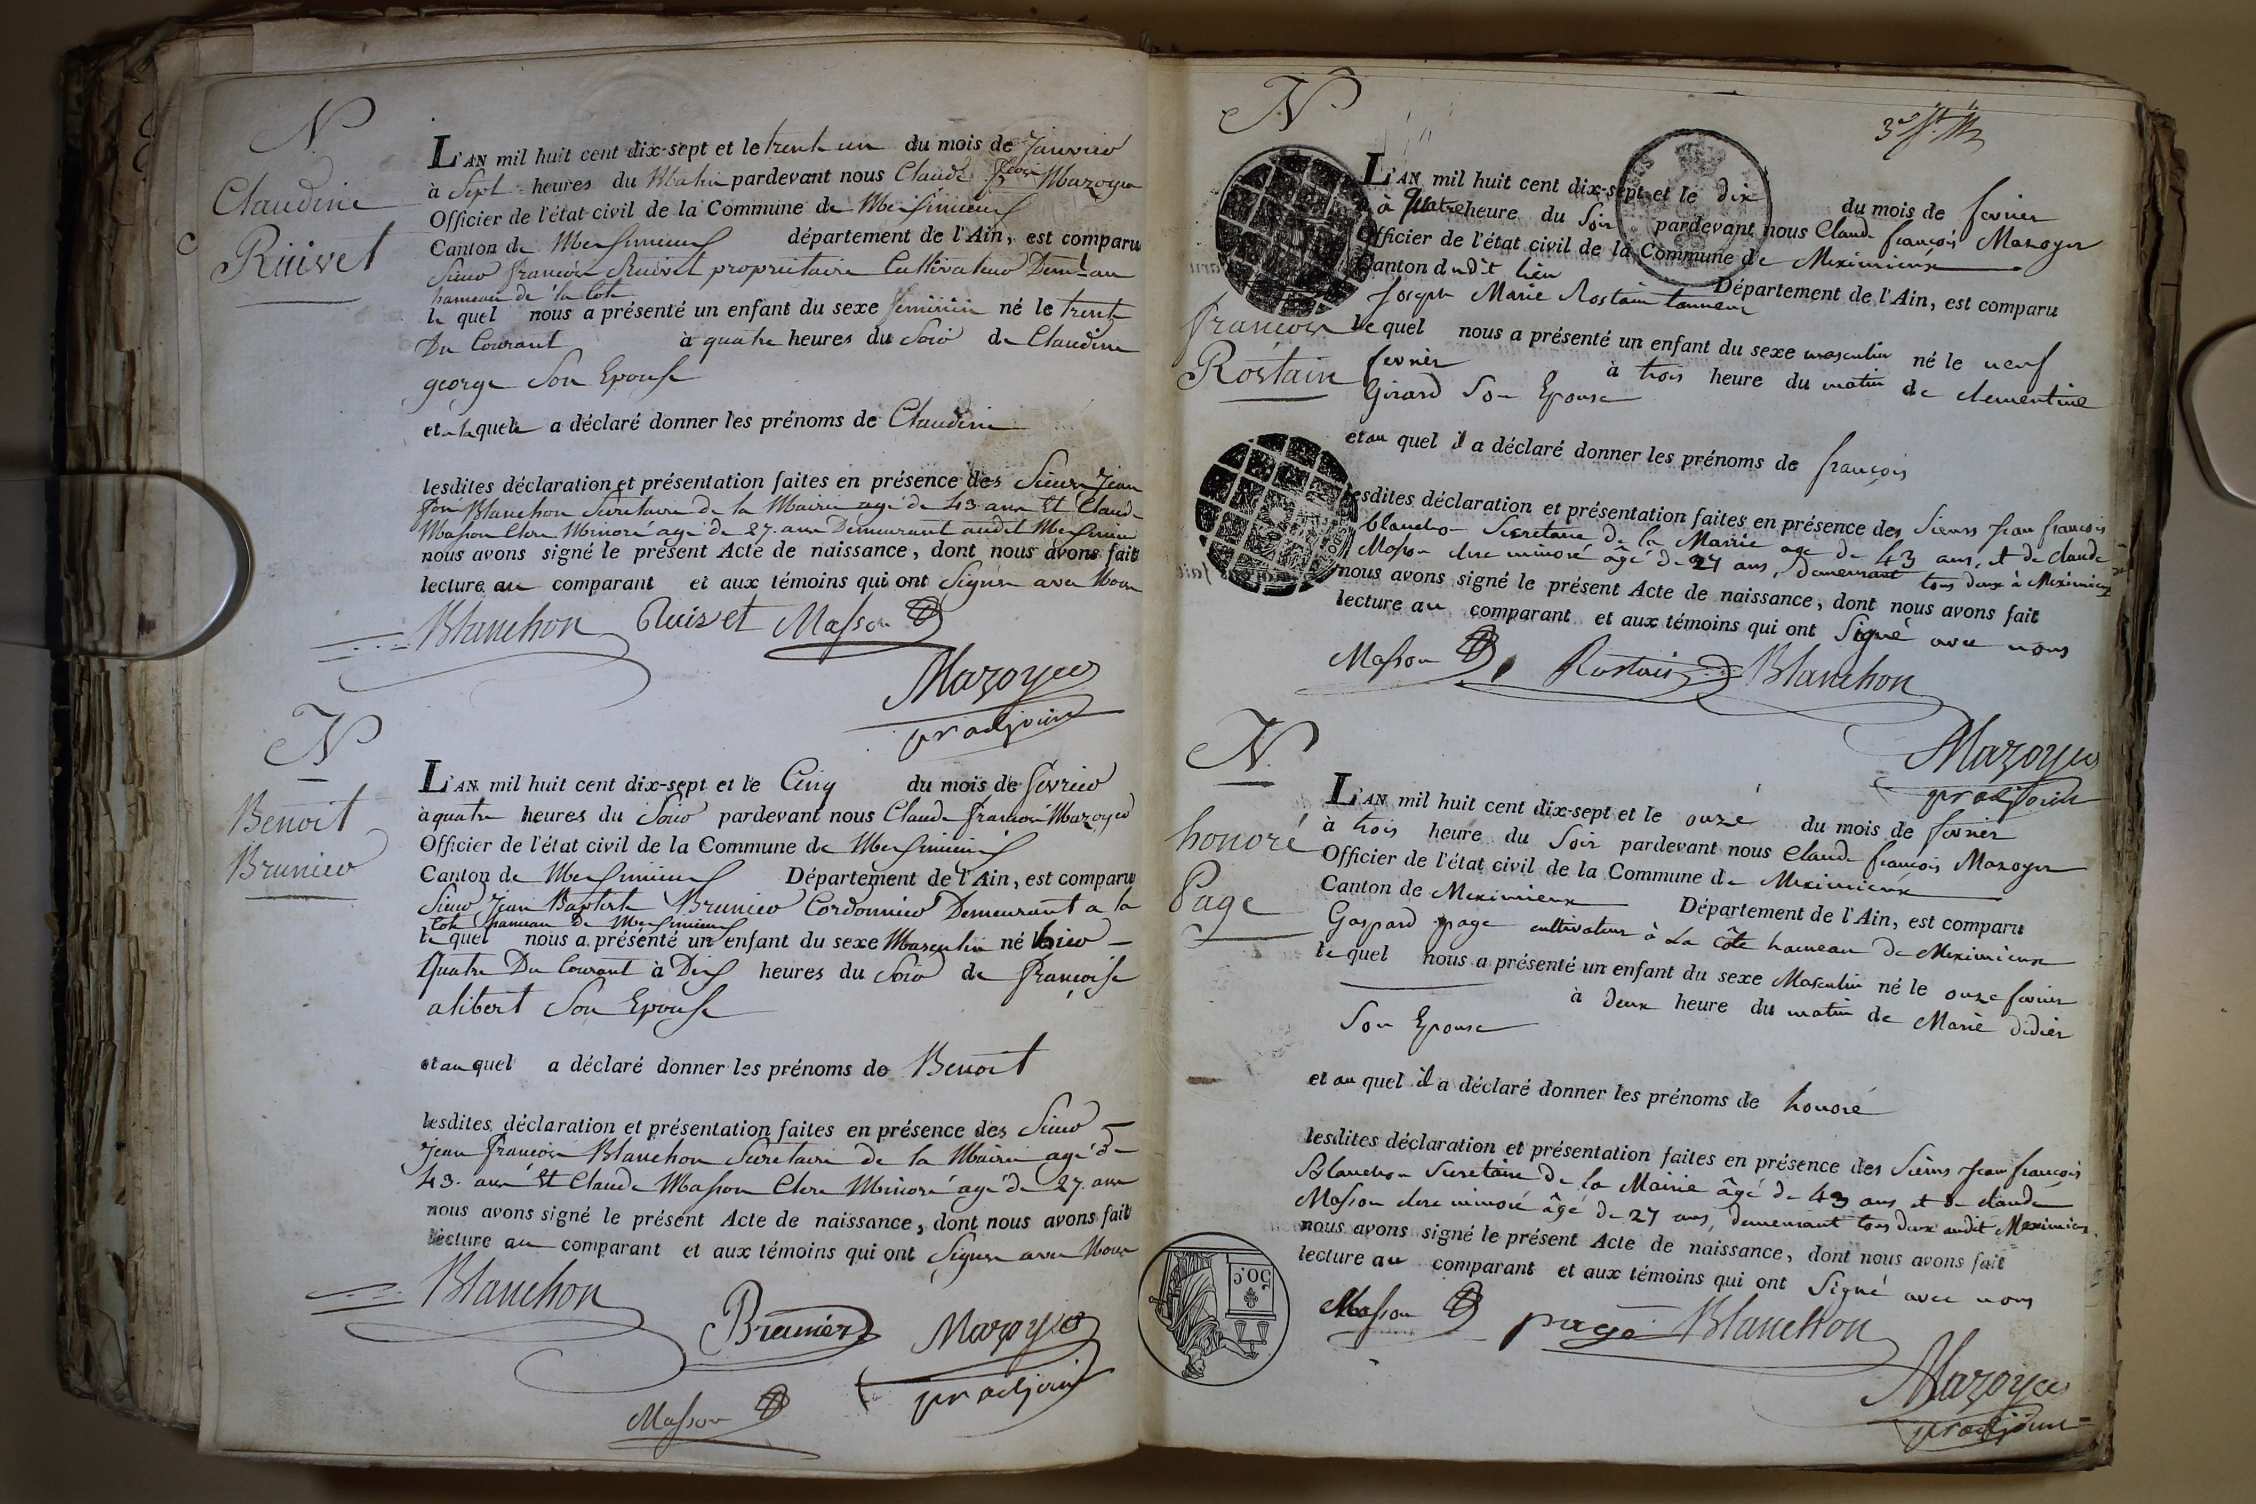 N
Claudine
Ruivet
L'AN mil huit cent dix-sept et le trente un du mois de Janvier
à Sept heures du Matin pardevant nous Claude françois Mazoyer
Officier de l'état civil de la Commune de Meximieux
Canton de Meximieux département de l'Ain, est comparu
Sieur françois Ruivet propriétaire Cultivateur Demt au
hameau de la Cote
le quel nous a présenté un enfant du sexe feminin né le trente
Du Courant à quatre heures du Soir de Claudine
george Son Epouse
et a laquelle a déclaré donner les prénoms de Claudine
lesdites déclaration et présentation faites en présence des Sieurs Jean
fois Blanchon Secretaire de la Mairie agé de 43 ans Et Claude
Masson Clerc Minoré agé de 27. ans Demeurant audit Meximieux
nous avons signé le présent Acte de naissance, dont nous avons fait
lecture au comparant et aux témoins qui ont Signés avec Nous
Blanchon Ruivet Masson
Mazoyer
pr adjoint
N
Benoit
Brunier
L'AN mil huit cent dix-sept et le Cinq du mois de fevrier
à quatre heures du Soir pardevant nous Claude françois Mazoyer
Officier de l'état civil de la Commune de Meximieux
Canton de Meximieux Département de l'Ain, est comparu
Sieur Jean Baptiste Brunier Cordonnier Demeurant a la
Cote hameau de Meximieux
le quel nous a présenté un enfant du sexe Masculin né hier
Quatre Du Courant à Dix heures du Soir de françoise
alibert Son Epouse
et au quel a déclaré donner les prénoms de Benoit
lesdites déclaration et présentation faites en présence des Sieurs
Jean françois Blanchon Secretaire de la Mairie agé de
43. ans Et Claude Masson Clerc Minoré agé de 27. ans
nous avons signé le présent Acte de naissance, dont nous avons fait
lecture au comparant et aux témoins qui ont Signés avec Nous
Blanchon
Brunier Mazoyer
pr adjoint
Masson
N
françois
Rostain
L'AN mil huit cent dix-sept et le dix du mois de fevrier
à quatre heure du Soir pardevant nous Claude françois Mazoyer
Officier de l'état civil de la Commune de Meximieux
Canton dudit lieu Département de l'Ain, est comparu
Joseph Marie Rostain tanneur
le quel nous a présenté un enfant du sexe masculin né le neuf
fevrier à trois heure du matin de clementine
Girard Son Epouse
et au quel il a déclaré donner les prénoms de françois
lesdites déclaration et présentation faites en présence des Sieurs jean françois
blanchon Secretaire de la Mairie age de 43 ans, et de claude
Masson clerc minoré âgé de 27 ans, demeurant tous deux à Meximieux
nous avons signé le présent Acte de naissance, dont nous avons fait
lecture au comparant et aux témoins qui ont Signé avec nous
Masson Rostain Blanchon
Mazoyer
pr adjoint
N.
honoré
Page
L'AN mil huit cent dix-sept et le onze du mois de fevrier
à trois heure du Soir pardevant nous Claude françois Mazoyer
Officier de l'état civil de la Commune de Meximieux
Canton de Meximieux Département de l'Ain, est comparu
Gaspard page cultivateur à La Côte hameau de Meximieux
le quel nous a présenté un enfant du sexe Masculin né le onze fevrier
à deux heure du matin de Marie didier
Son Epouse
et au quel il a déclaré donner les prénoms de honoré
lesdites déclaration et présentation faites en présence des Sieurs jean françois
Blanchon Secretaire de la Mairie âgé de 43 ans et de claude
Masson clerc minoré âgé de 27 ans, demeurant tous deux audit Meximieux
nous avons signé le présent Acte de naissance, dont nous avons fait
lecture au comparant et aux témoins qui ont Signé avec nous
50.c
Masson page Blanchon
Mazoyer
pr adjoint